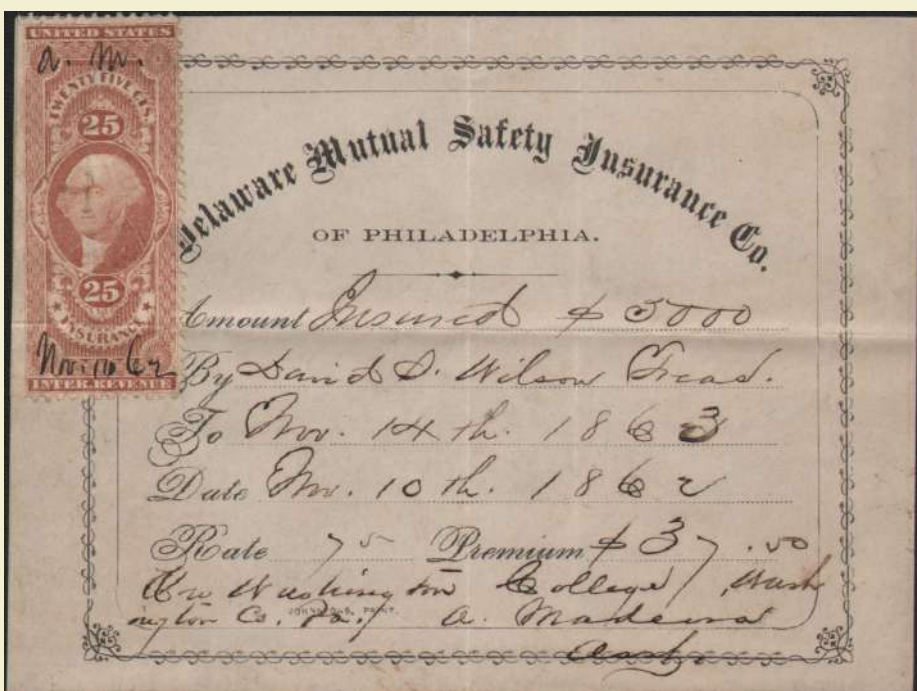 UNITED STATES
a. m.
TWENTY FIVE CTS.
25
25
INSURANCE
Nov. 10 62
INTER. REVENUE
Delaware Mutual Safety Insurance Co.
OF PHILADELPHIA.
Amount Insured $ 5000
By David S. Wilson Treas.
To Nov. 14th. 1863
Date Nov. 10th. 1862
Rate 75 Premium $ 37.50
On Washington College, Wash
ington Co. Pa. A. Madeira
PRINT.